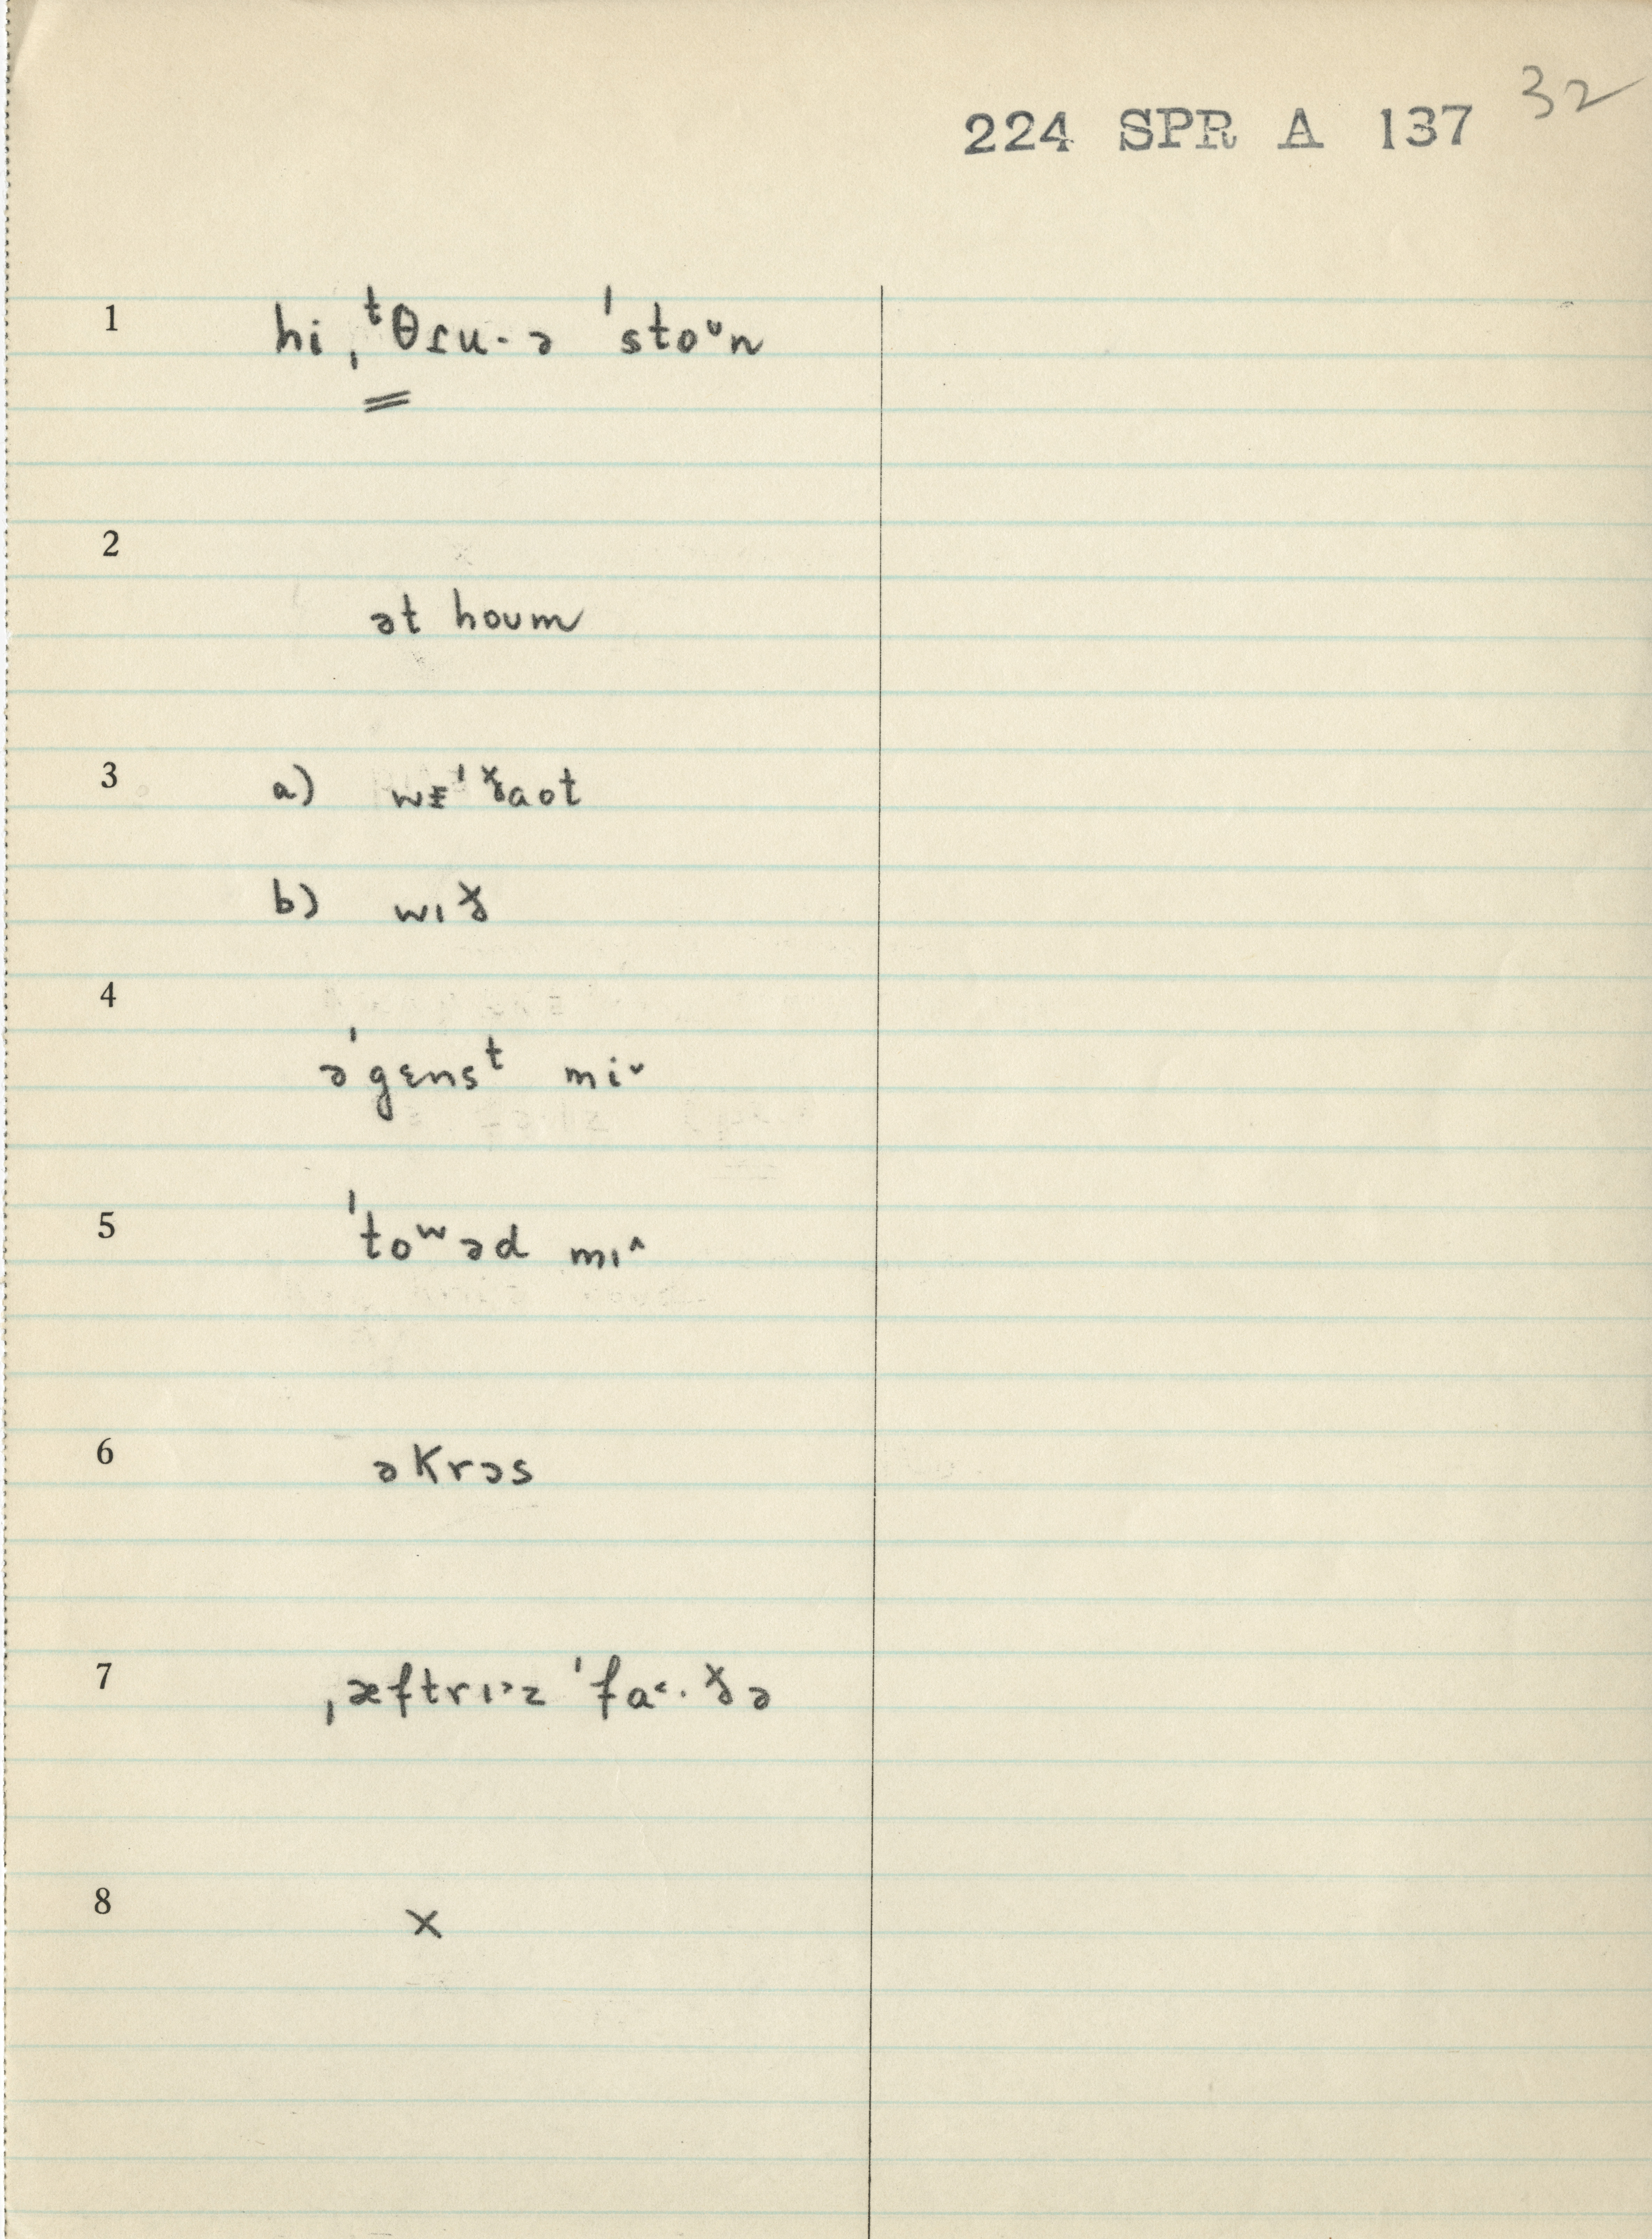 32
224 SPR A 137
1 hi ˌᵗθɾu· ə ˈstoᵕn
2
ət houm
3 a) wᵻˈðaot
b) wɪð
4
əˈgɛnsᵗ mi˅
5 ˈtoʷəd mɪ˄
6 əkrəs
7 ˌæftrɪ˃z ˈfa˂·ðə
8 x